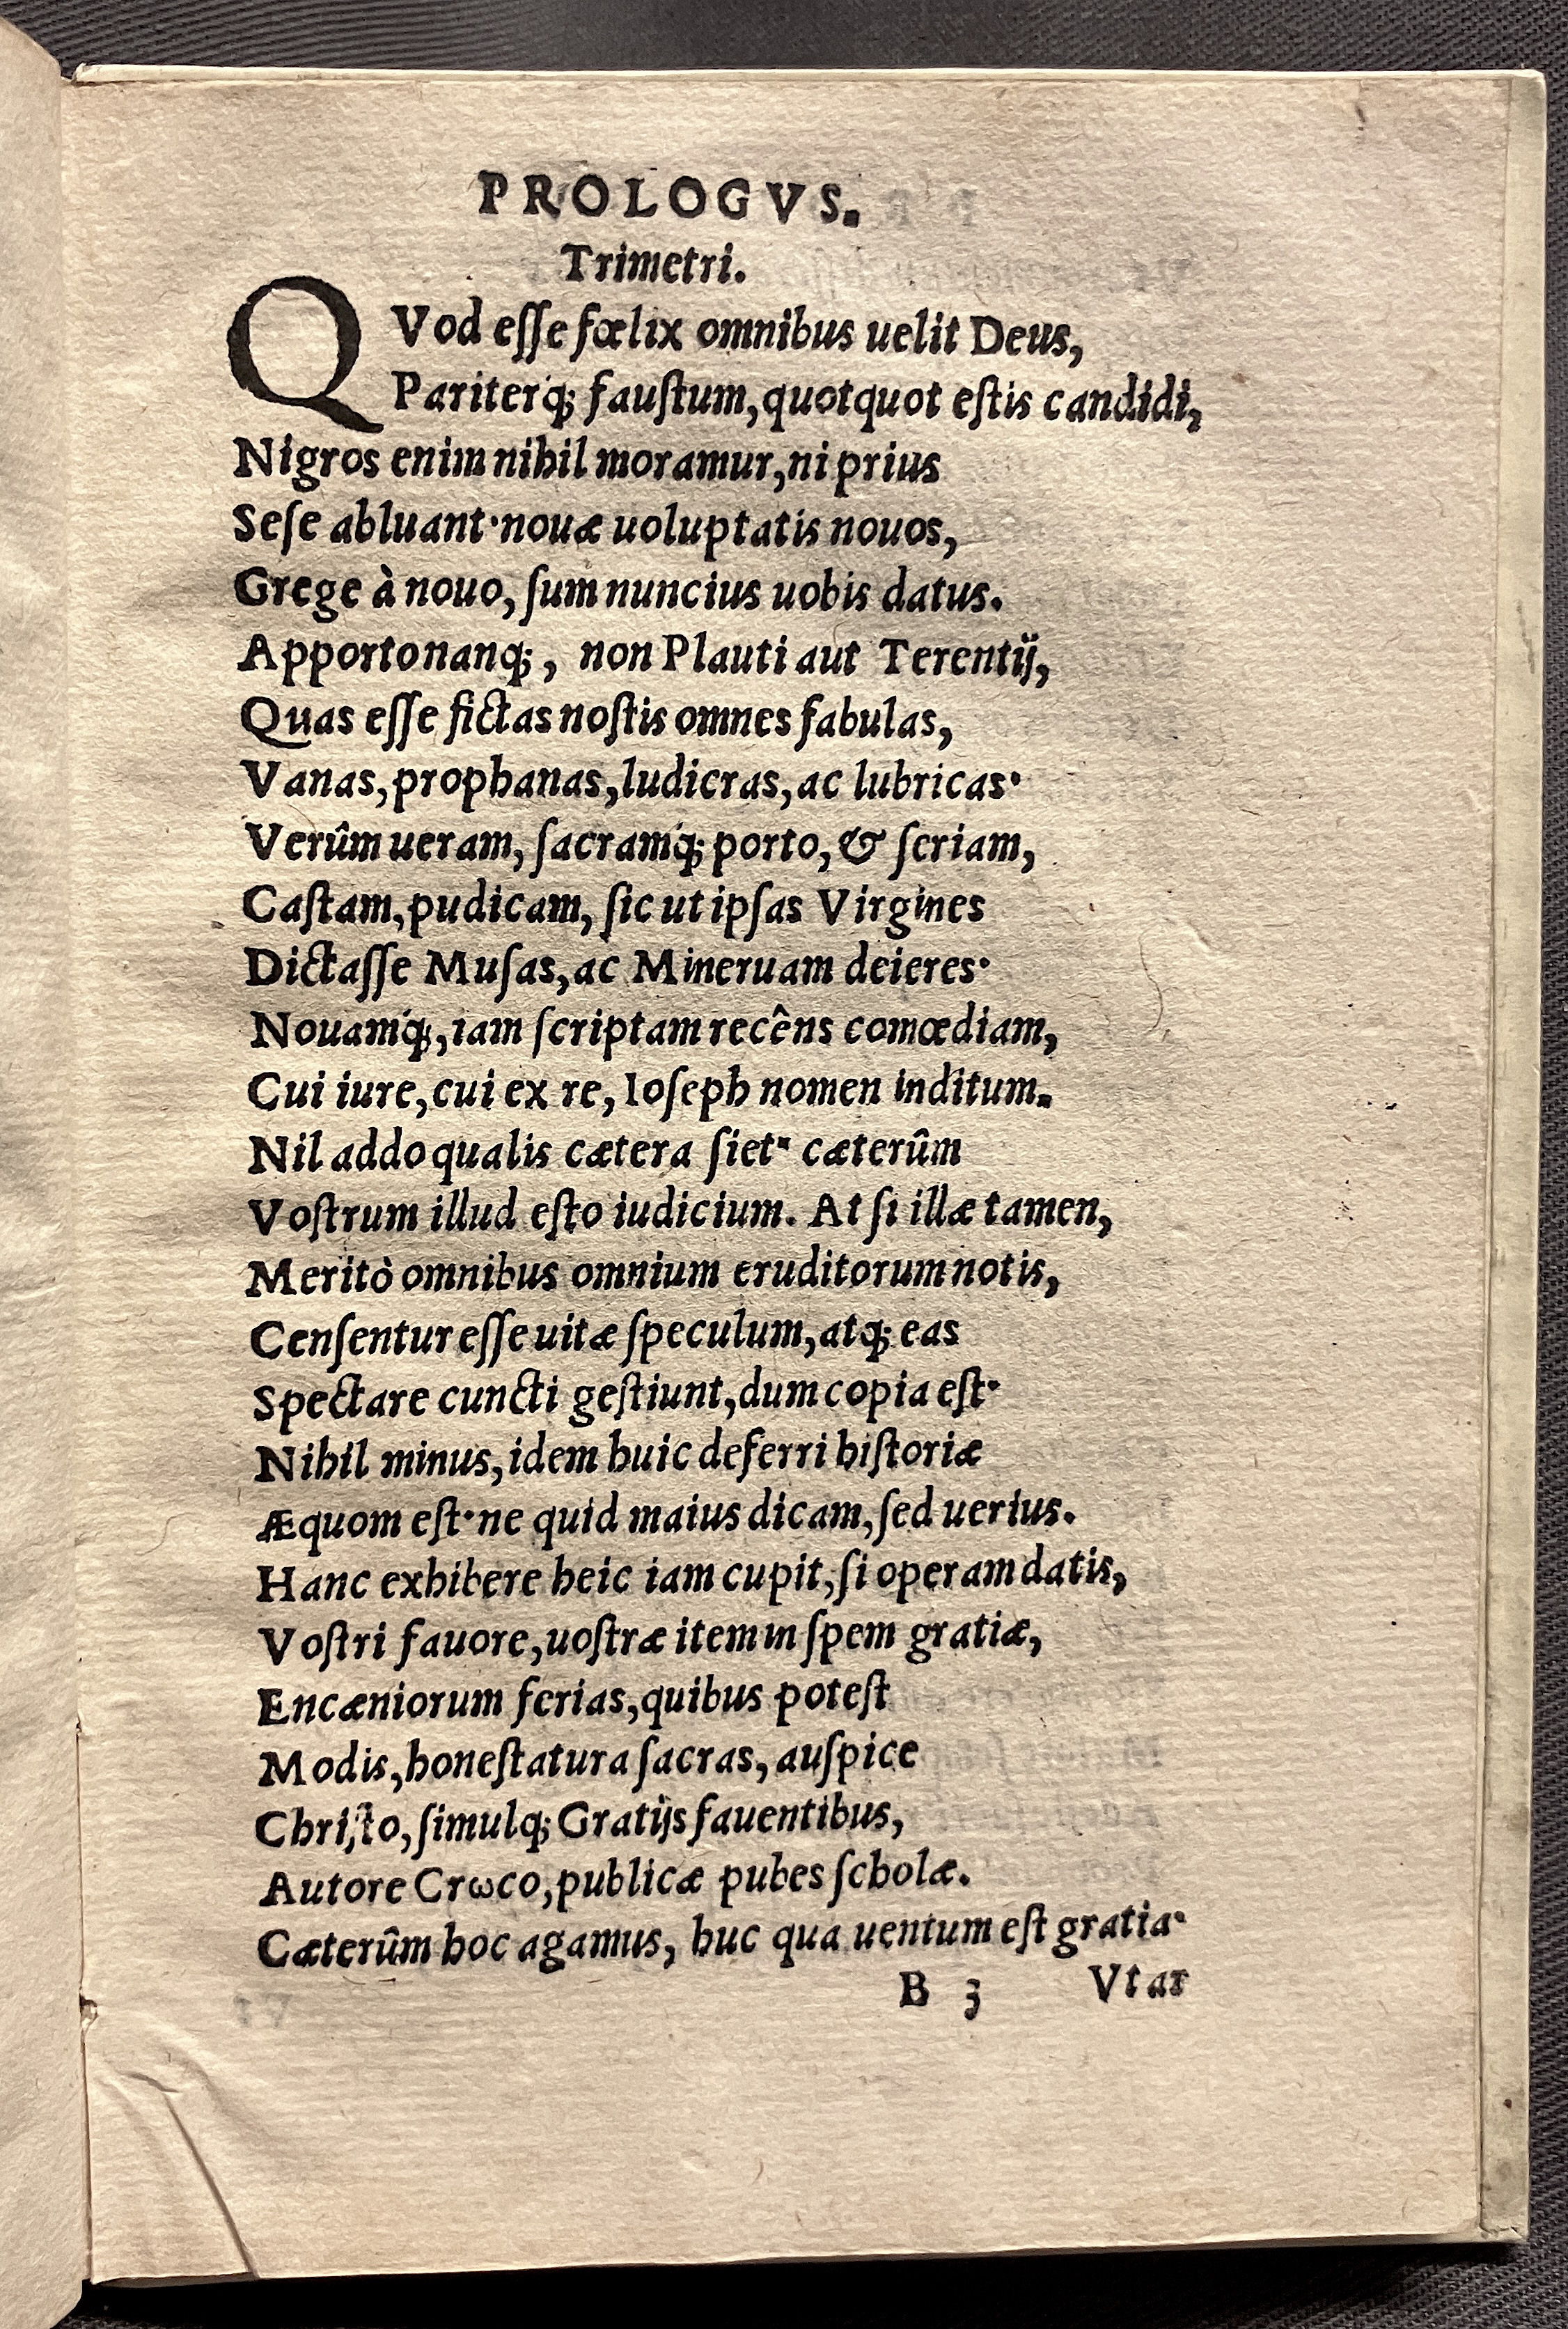 PROLOGVS.
Trimetri.
QVod eſſe fœlix omnibus uelit Deus,
Pariterq́; fauſtum, quotquot eſtis candidi,
Nigros enim nihil moramur, ni prius
Seſe abluant· nouæ uoluptatis nouos,
Grege à nouo, ſum nuncius uobis datus.
Apporto nanq;, non Plauti aut Terentij,
Quas eſſe fictas noſtis omnes fabulas,
Vanas, prophanas, ludicras, ac lubricas·
Verûm ueram, ſacramq́; porto, & ſeriam,
Caſtam, pudicam, ſic ut ipſas Virgines
Dictaſſe Muſas, ac Mineruam deieres·
Nouamq́;, iam ſcriptam recêns comœdiam,
Cui iure, cui ex re, Ioſeph nomen inditum.
Nil addo qualis cætera ſiet· cæterûm
Voſtrum illud eſto iudicium. At ſi illæ tamen,
Meritò omnibus omnium eruditorum notis,
Cenſentur eſſe uitæ ſpeculum, atq; eas
Spectare cuncti geſtiunt, dum copia eſt·
Nihil minus, idem huic deferri hiſtoriæ
Æquom eſt· ne quid maius dicam, ſed uerius.
Hanc exhibere heic iam cupit, ſi operam datis,
Voſtri fauore, uoſtræ item in ſpem gratiæ,
Encæniorum ferias, quibus poteſt
Modis, honeſtatura ſacras, auſpice
Chriſto, ſimulq; Gratijs fauentibus,
Autore Crωco, publicæ pubes ſcholæ.
Cæterûm hoc agamus, huc qua uentum eſt gratia·
B 3 Vtar